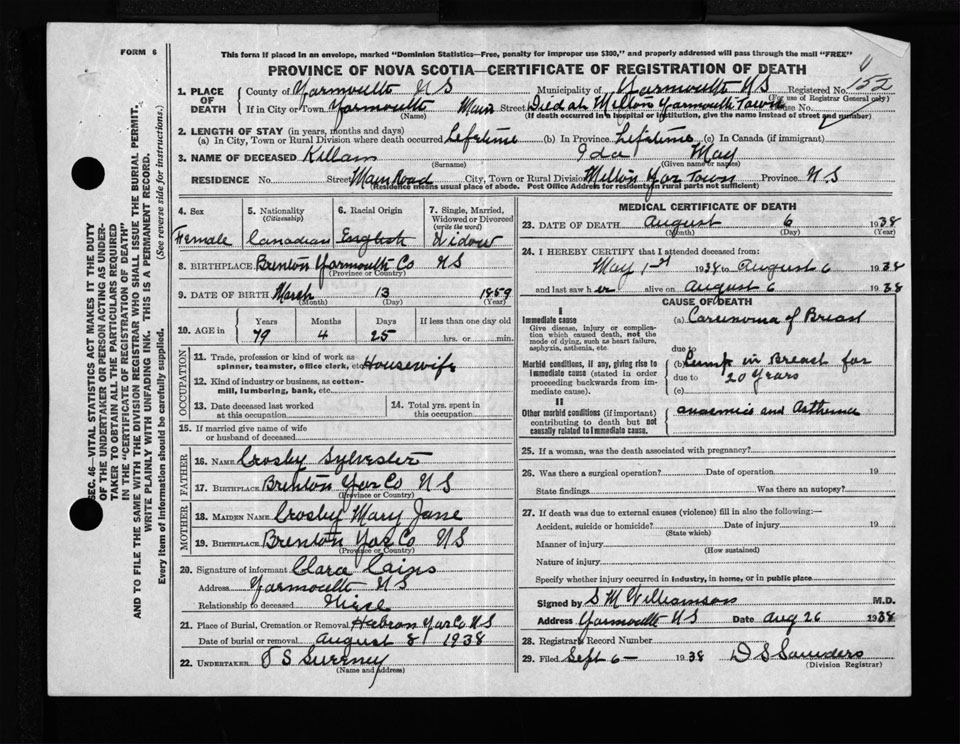 FORM 6
This form if placed in an envelope, marked "Dominion Statistics—Free, penalty for improper use $300," and properly addressed will pass through the mail "FREE"
PROVINCE OF NOVA SCOTIA—CERTIFICATE OF REGISTRATION OF DEATH
152
1. PLACE OF DEATH
County of Yarmouth N S Municipality of Yarmouth N S Registered No.
(For use of Registrar General only)
If in City or Town Yarmouth Main Street Died at Milton Yarmouth Town House No.
(Name) (If death occurred in a hospital or institution, give the name instead of street and number)
2. LENGTH OF STAY (in years, months and days)
(a) In City, Town or Rural Division where death occurred Lifetime (b) In Province Lifetime (c) In Canada (if immigrant)
3. NAME OF DECEASED Killam Ida May
(Surname) (Given name or names)
RESIDENCE No. Street Main Road City, Town or Rural Division Milton Yar Town Province N S
(Residence means usual place of abode. Post Office Address for residents in rural parts not sufficient)
4. Sex
Female
5. Nationality
(Citizenship)
Canadian
6. Racial Origin
English
7. Single, Married, Widowed or Divorced
(write the word)
Widow
8. BIRTHPLACE Brenton Yarmouth Co N S
(Province or Country)
9. DATE OF BIRTH March 13 1859
(Month) (Day) (Year)
10. AGE in
Years Months Days If less than one day old
79 4 25 hrs. or min.
OCCUPATION
11. Trade, profession or kind of work as spinner, teamster, office clerk, etc. Housewife
12. Kind of industry or business, as cotton-mill, lumbering, bank, etc.
13. Date deceased last worked at this occupation
14. Total yrs. spent in this occupation
15. If married give name of wife or husband of deceased
FATHER
16. NAME Crosby Sylvester
17. BIRTHPLACE Brenton Yar Co N S
(Province or Country)
MOTHER
18. MAIDEN NAME Crosby Mary Jane
19. BIRTHPLACE Brenton Yar Co N S
(Province or Country)
20. Signature of informant Clara Cains
Address Yarmouth N S
Relationship to deceased Niece
21. Place of Burial, Cremation or Removal Hebron Yar Co N S
Date of burial or removal August 8 1938
22. UNDERTAKER S Sweeney
(Name and address)
MEDICAL CERTIFICATE OF DEATH
23. DATE OF DEATH August 6 1938
(Month) (Day) (Year)
24. I HEREBY CERTIFY that I attended deceased from:
May 1st 1938 to August 6 1938
and last saw her alive on August 6 1938
CAUSE OF DEATH
I
Immediate cause
Give disease, injury or complication which caused death, not the mode of dying, such as heart failure, asphyxia, asthenia, etc.
(a) Carcinoma of Breast
due to
Morbid conditions, if any, giving rise to immediate cause (stated in order proceeding backwards from immediate cause).
(b) Lump in Breast for
due to 20 Years
(c)
II
Other morbid conditions (if important) contributing to death but not causally related to immediate cause.
anaemia and Asthma
25. If a woman, was the death associated with pregnancy?
26. Was there a surgical operation? Date of operation 19
State findings Was there an autopsy?
27. If death was due to external causes (violence) fill in also the following:—
Accident, suicide or homicide? Date of injury 19
(State which)
Manner of injury
(How sustained)
Nature of injury
Specify whether injury occurred in industry, in home, or in public place
Signed by S M Williamson M.D.
Address Yarmouth N S Date Aug 26 1938
28. Registrar's Record Number
29. Filed Sept 6 1938 D S Saunders
(Division Registrar)
SEC. 46—VITAL STATISTICS ACT MAKES IT THE DUTY
OF THE UNDERTAKER OR PERSON ACTING AS UNDER-
TAKER TO OBTAIN ALL THE PARTICULARS REQUIRED
IN THE "CERTIFICATE OF REGISTRATION OF DEATH"
AND TO FILE THE SAME WITH THE DIVISION REGISTRAR WHO SHALL ISSUE THE BURIAL PERMIT.
WRITE PLAINLY WITH UNFADING INK. THIS IS A PERMANENT RECORD.
Every item of information should be carefully supplied. (See reverse side for instructions.)